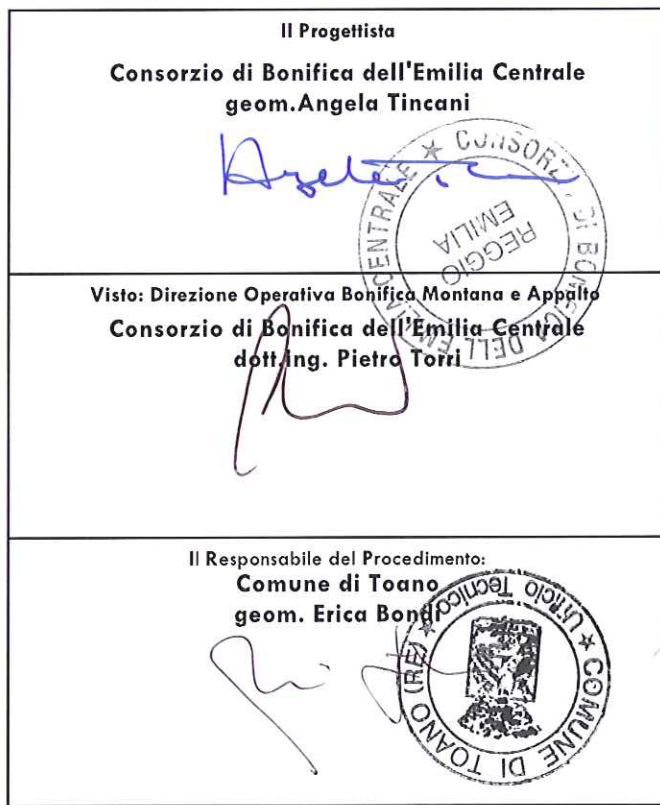 Il Progettista
Consorzio di Bonifica dell'Emilia Centrale
geom.Angela Tincani
★ CONSORZIO DI BONIFICA DELL'EMILIA CENTRALE
REGGIO
EMILIA
Visto: Direzione Operativa Bonifica Montana e Appalto
Consorzio di Bonifica dell'Emilia Centrale
dott.ing. Pietro Torri
Il Responsabile del Procedimento:
Comune di Toano
geom. Erica Bondi
★ COMUNE DI TOANO (RE) ★ Ufficio Tecnico